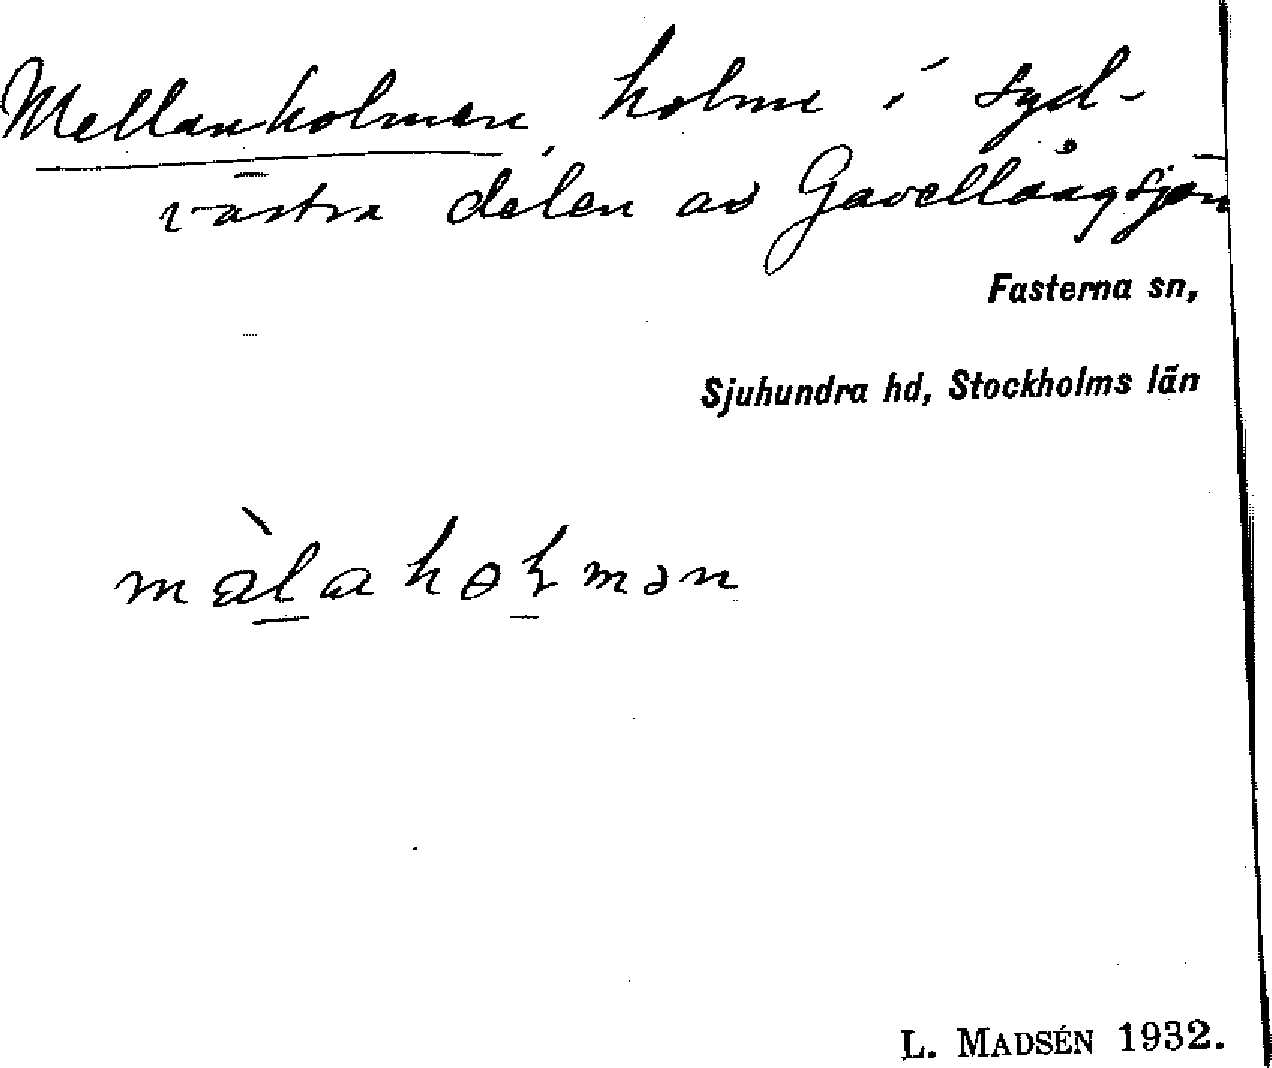 Mellanholmen, holme i syd-
västra delen av Gavellångsjön
Fasterna sn,
Sjuhundra hd, Stockholms län
L. MADSÉN 1932.